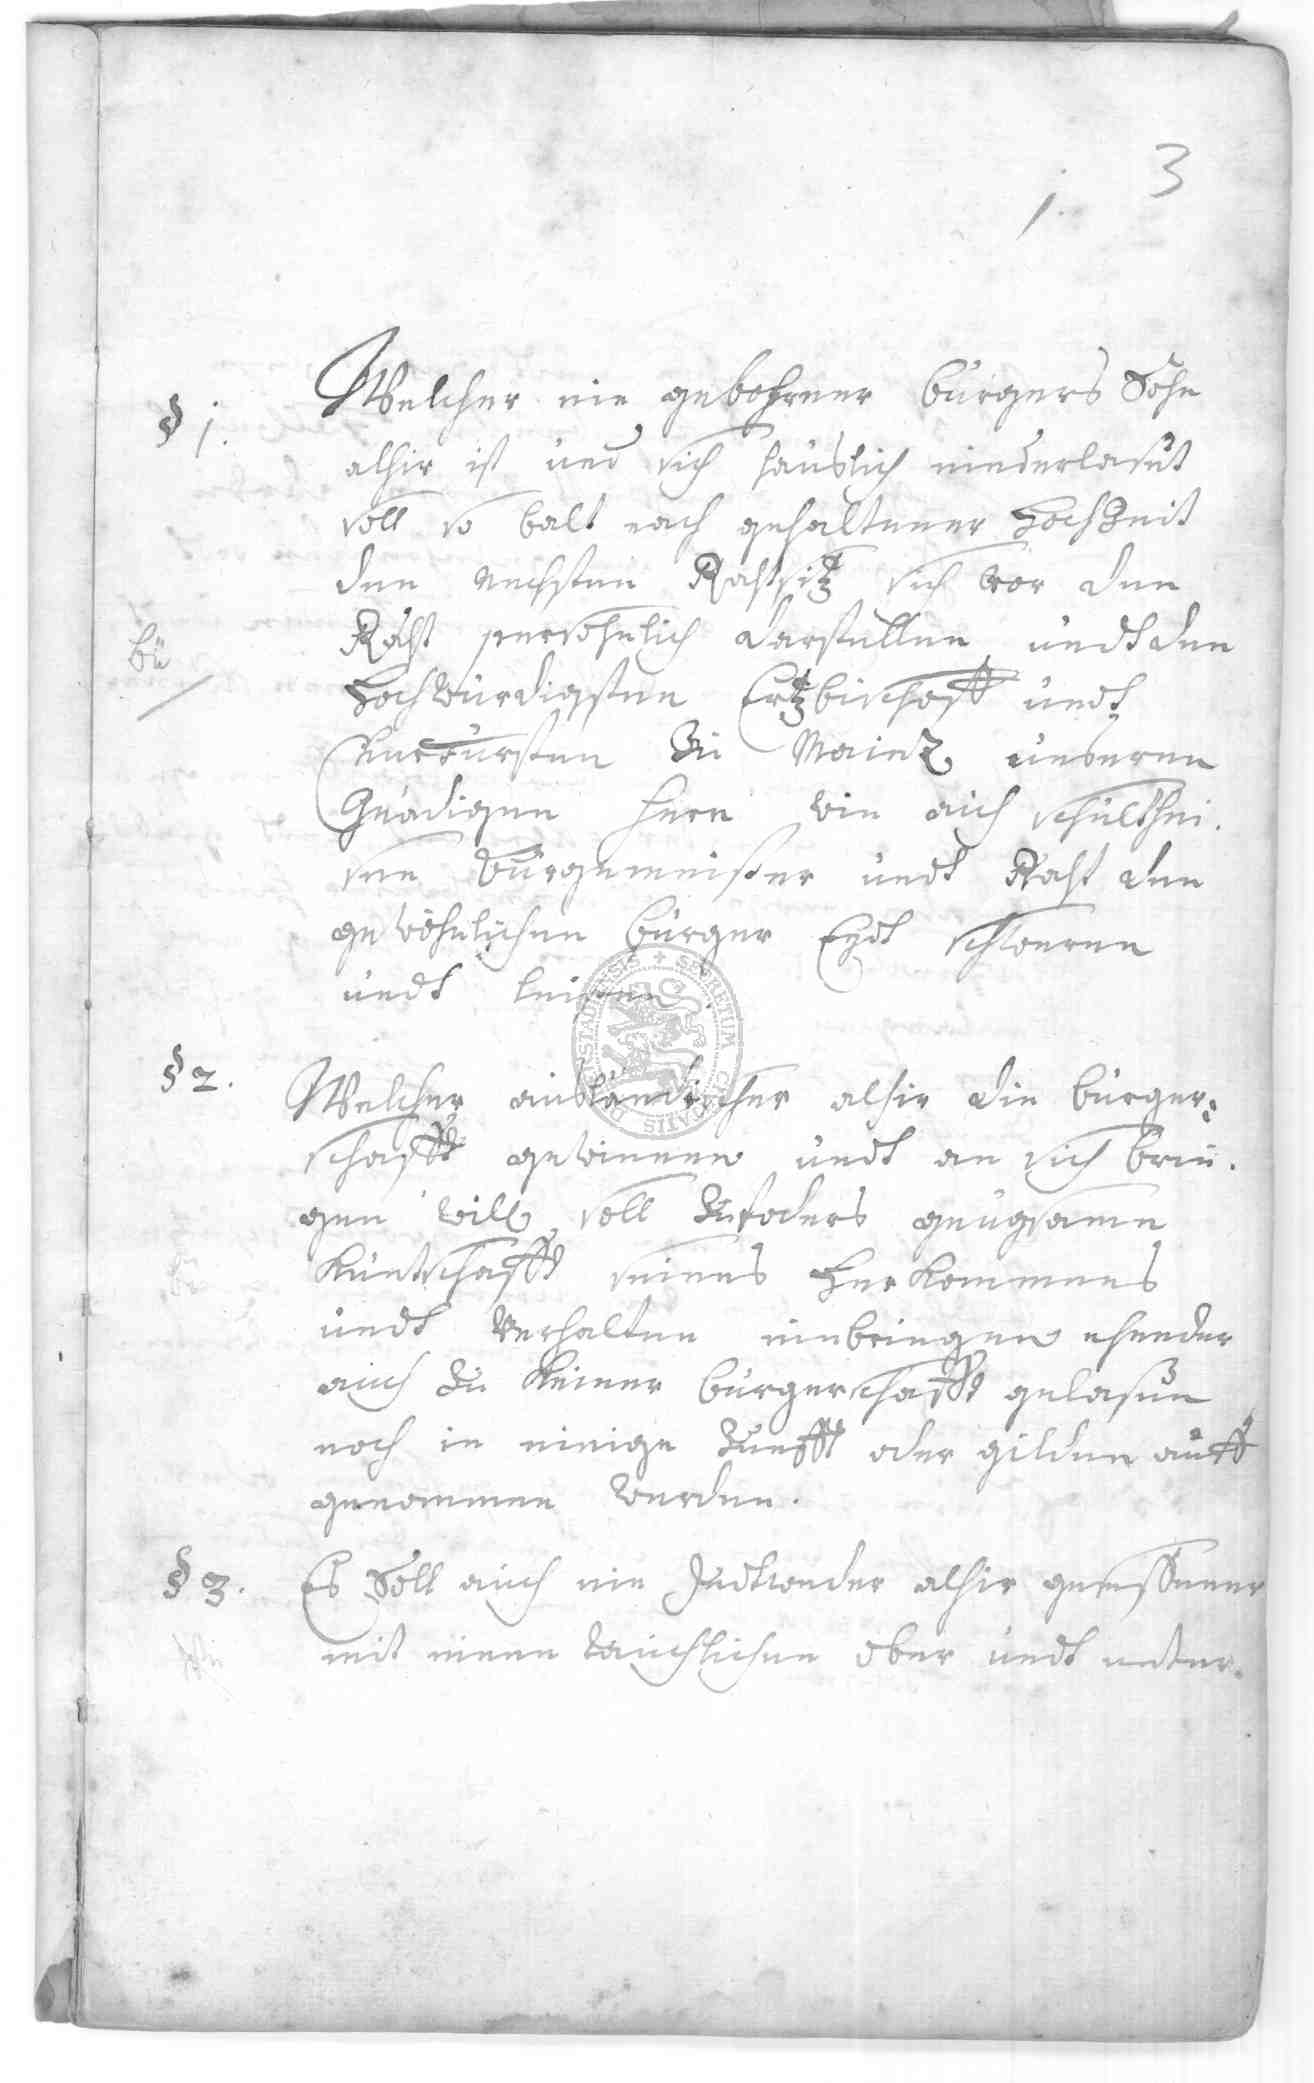 3
1.
§ 1.
Welcher ein gebohrner bürgers Sohn
alhir ist und sich häuslich niederlaset
soll so balt nach gehaltener HochZeit
den nechsten Rahtsitz sich vor den
Raht persöhnlich darstellen undt den
Hochwürdigsten Ertzbischoff undt
Churfürsten zu Maintz unseren
Gnädigen Hern wie auch schulthei.
sen Bürgemeister undt Raht den
gewöhnlichen bürger Eydt schweren
undt leisten.
bü
§ 2.
Welcher ausländischer alhir die bürger:
schafft gewinnen undt an sich brin.
gen will, soll zufoders gnugsame
Kuntschafft seines Herkommens
undt verhalten einbringen ehender
auch zu keiner bürgerschafft gelasen
noch in einige Zunfft oder gilden auff
genommen werden.
§ 3.
Es Soll auch ein Jedtweder alhir gesessener
mit einem tauchlichen Ober undt unter.
SECRETUM